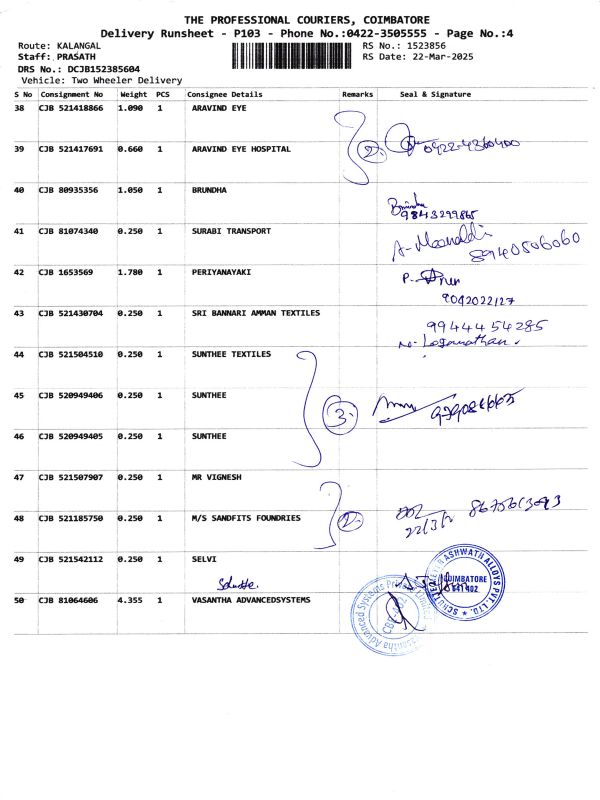 THE PROFESSIONAL COURIERS, COIMBATORE
Delivery Runsheet - P103 - Phone No.:0422-3505555 - Page No.:4
Route: KALANGAL RS No.: 1523856
Staff: PRASATH RS Date: 22-Mar-2025
DRS No.: DCJB152385604
Vehicle: Two Wheeler Delivery
S No Consignment No Weight PCS Consignee Details Remarks Seal & Signature
38 CJB 521418866 1.090 1 ARAVIND EYE
39 CJB 521417691 0.660 1 ARAVIND EYE HOSPITAL 2. 0422-4360400
40 CJB 80935356 1.050 1 BRUNDHA
9843299865
41 CJB 81074340 0.250 1 SURABI TRANSPORT
8940506060
42 CJB 1653569 1.780 1 PERIYANAYAKI P.
9042022127
43 CJB 521430704 0.250 1 SRI BANNARI AMMAN TEXTILES
9944454285
Loganathan
44 CJB 521504510 0.250 1 SUNTHEE TEXTILES
45 CJB 520949406 0.250 1 SUNTHEE 3.
46 CJB 520949405 0.250 1 SUNTHEE
47 CJB 521507907 0.250 1 MR VIGNESH
48 CJB 521185750 0.250 1 M/S SANDFITS FOUNDRIES 2.
22/3/2
49 CJB 521542112 0.250 1 SELVI
ASHWATH ALLOYS PVT. LTD.
COIMBATORE
641 402
50 CJB 81064606 4.355 1 VASANTHA ADVANCEDSYSTEMS
Vasantha Advanced Systems Private Limited